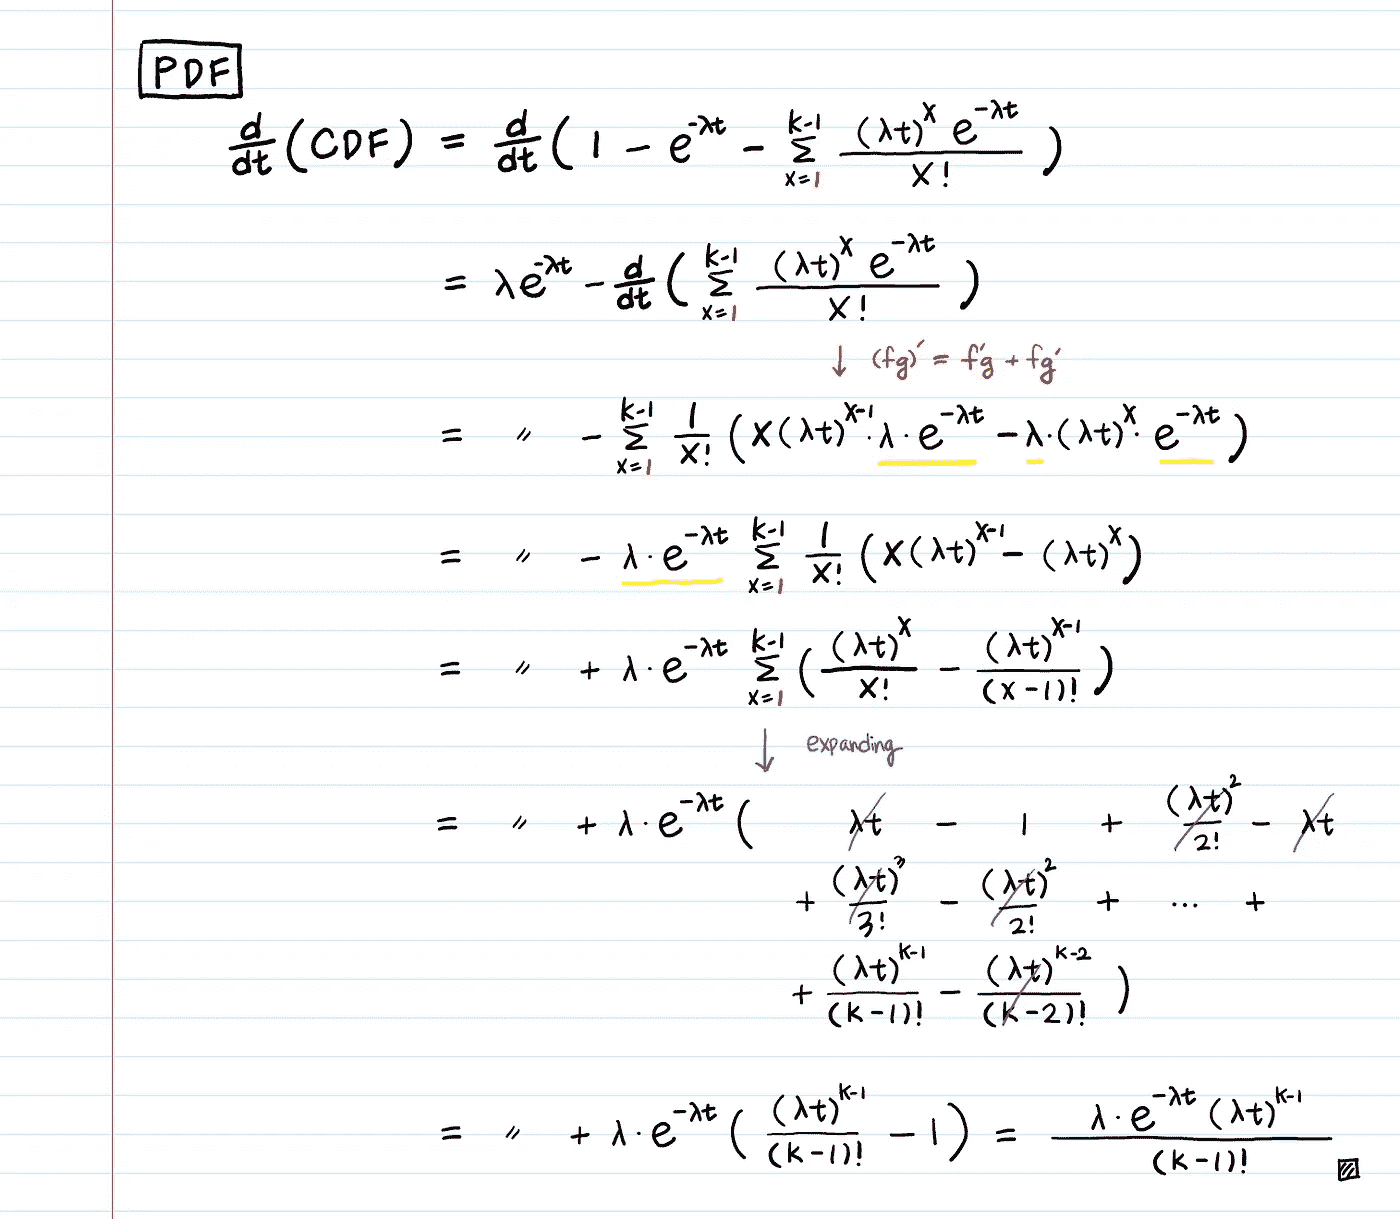 PDF
d/dt (CDF) = d/dt ( 1 - e^{-λt} - Σ_{x=1}^{k-1} (λt)^x e^{-λt} / x! )
= λe^{-λt} - d/dt ( Σ_{x=1}^{k-1} (λt)^x e^{-λt} / x! )
↓ (fg)′ = f′g + fg′
= 〃 - Σ_{x=1}^{k-1} 1/x! ( x(λt)^{x-1} · λ · e^{-λt} - λ · (λt)^x · e^{-λt} )
= 〃 - λ · e^{-λt} Σ_{x=1}^{k-1} 1/x! ( x(λt)^{x-1} - (λt)^x )
= 〃 + λ · e^{-λt} Σ_{x=1}^{k-1} ( (λt)^x / x! - (λt)^{x-1} / (x-1)! )
↓ expanding
= 〃 + λ · e^{-λt} ( λt - 1 + (λt)^2 / 2! - λt
+ (λt)^3 / 3! - (λt)^2 / 2! + ... +
+ (λt)^{k-1} / (k-1)! - (λt)^{k-2} / (k-2)! )
= 〃 + λ · e^{-λt} ( (λt)^{k-1} / (k-1)! - 1 ) = λ · e^{-λt} (λt)^{k-1} / (k-1)!